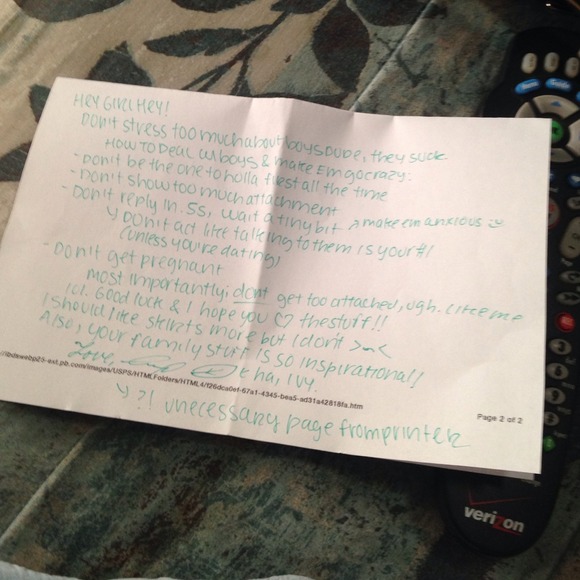 HEY GIRL HEY!
Don't stress too much about boys dude, they suck
HOW TO DEAL w/ boys & make Em go crazy:
- Don't be the one to holla first all the time
- Don't show too much attachment
- Don't reply in .5s, wait a tiny bit → make em anxious
↳ Don't act like talking to them is your #1
(unless you're dating)
- Don't get pregnant
most importantly; dont get too attached, ugh. Like me
lol. Good luck & I hope you ♡ the stuff!!
I should like skirts more but I don't >~<
Also, your family stuff is so inspirational!
Love,
Page 2 of 2
↳ ?! unecessary page from printer
verizon
Guide